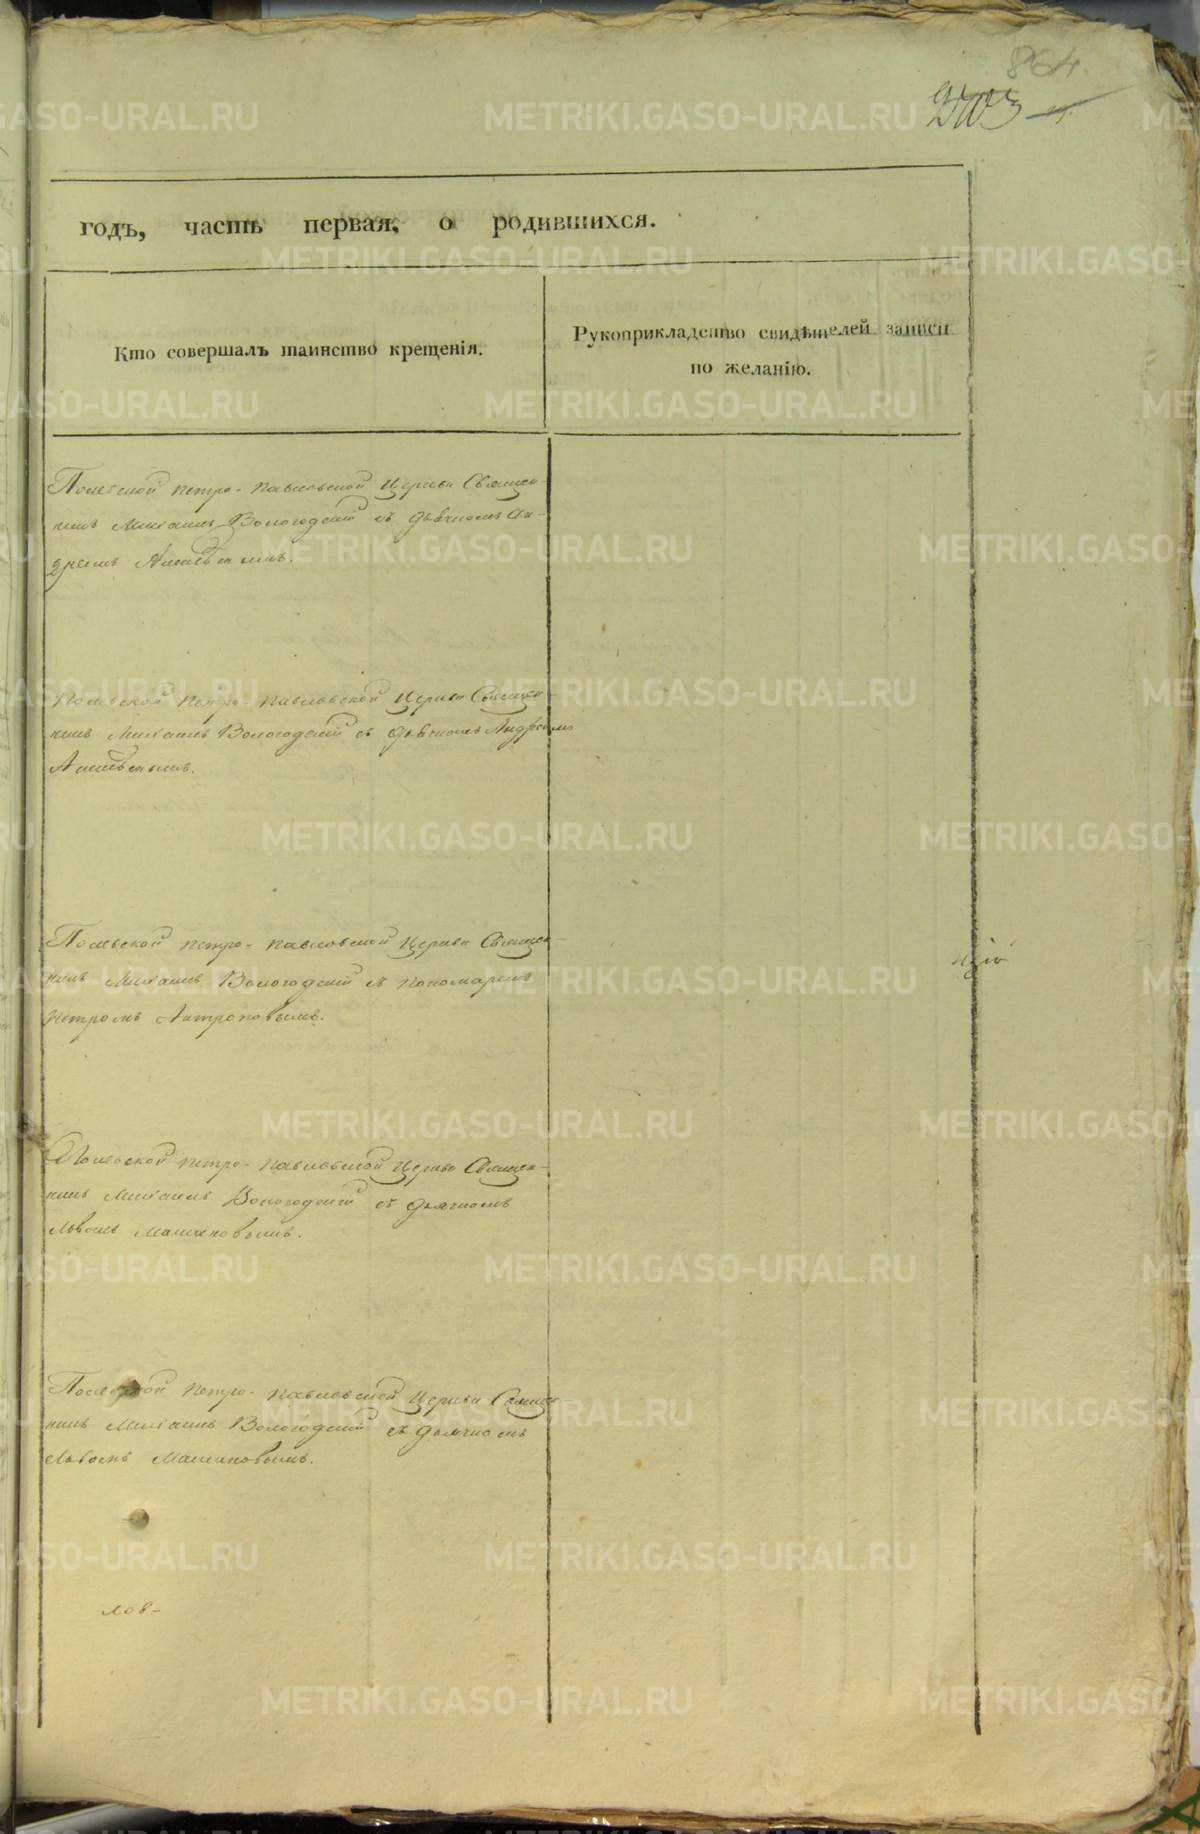 864
годъ, часть первая, о родившихся.
Кто совершалъ таинство крещенія.
Рукоприкладство свидѣтелей записи
по желанію.
Полевской Петро-Павловской Церкви Священ-
никъ Михаилъ Вологодскій съ дьячкомъ Ан-
дреемъ
Полевской Петро-Павловской Церкви Священ-
никъ Михаилъ Вологодскій съ дьячкомъ Андреемъ
Полевской Петро-Павловской Церкви Священ-
никъ Михаилъ Вологодскій съ пономаремъ
Петромъ Антроповымъ.
Полевской Петро-Павловской Церкви Священ-
никъ Михаилъ Вологодскій съ дьячкомъ
Львомъ
Полевской Петро-Павловской Церкви Священ-
никъ Михаилъ Вологодскій съ дьячкомъ
Львомъ
лов-
METRIKI.GASO-URAL.RU